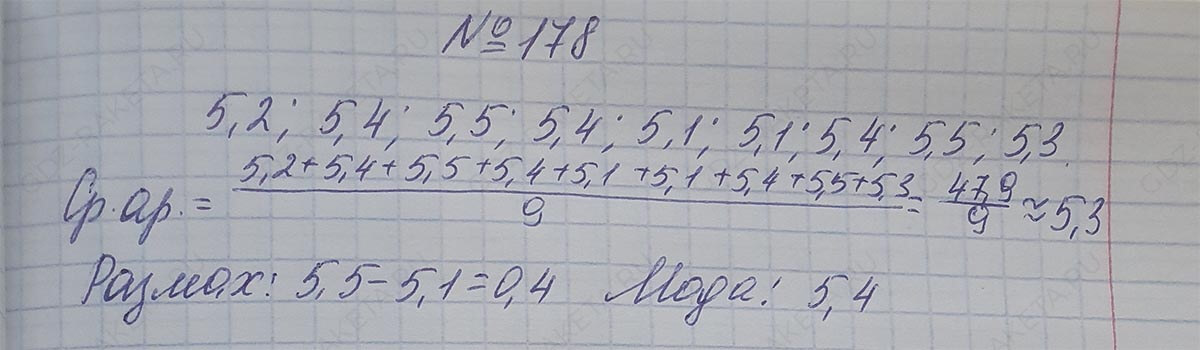 №178
5,2; 5,4; 5,5; 5,4; 5,1; 5,1; 5,4; 5,5; 5,3.
Ср.ар. = (5,2+5,4+5,5+5,4+5,1+5,1+5,4+5,5+5,3)/9 = 47,9/9 ≈ 5,3
Размах: 5,5-5,1=0,4 Мода: 5,4